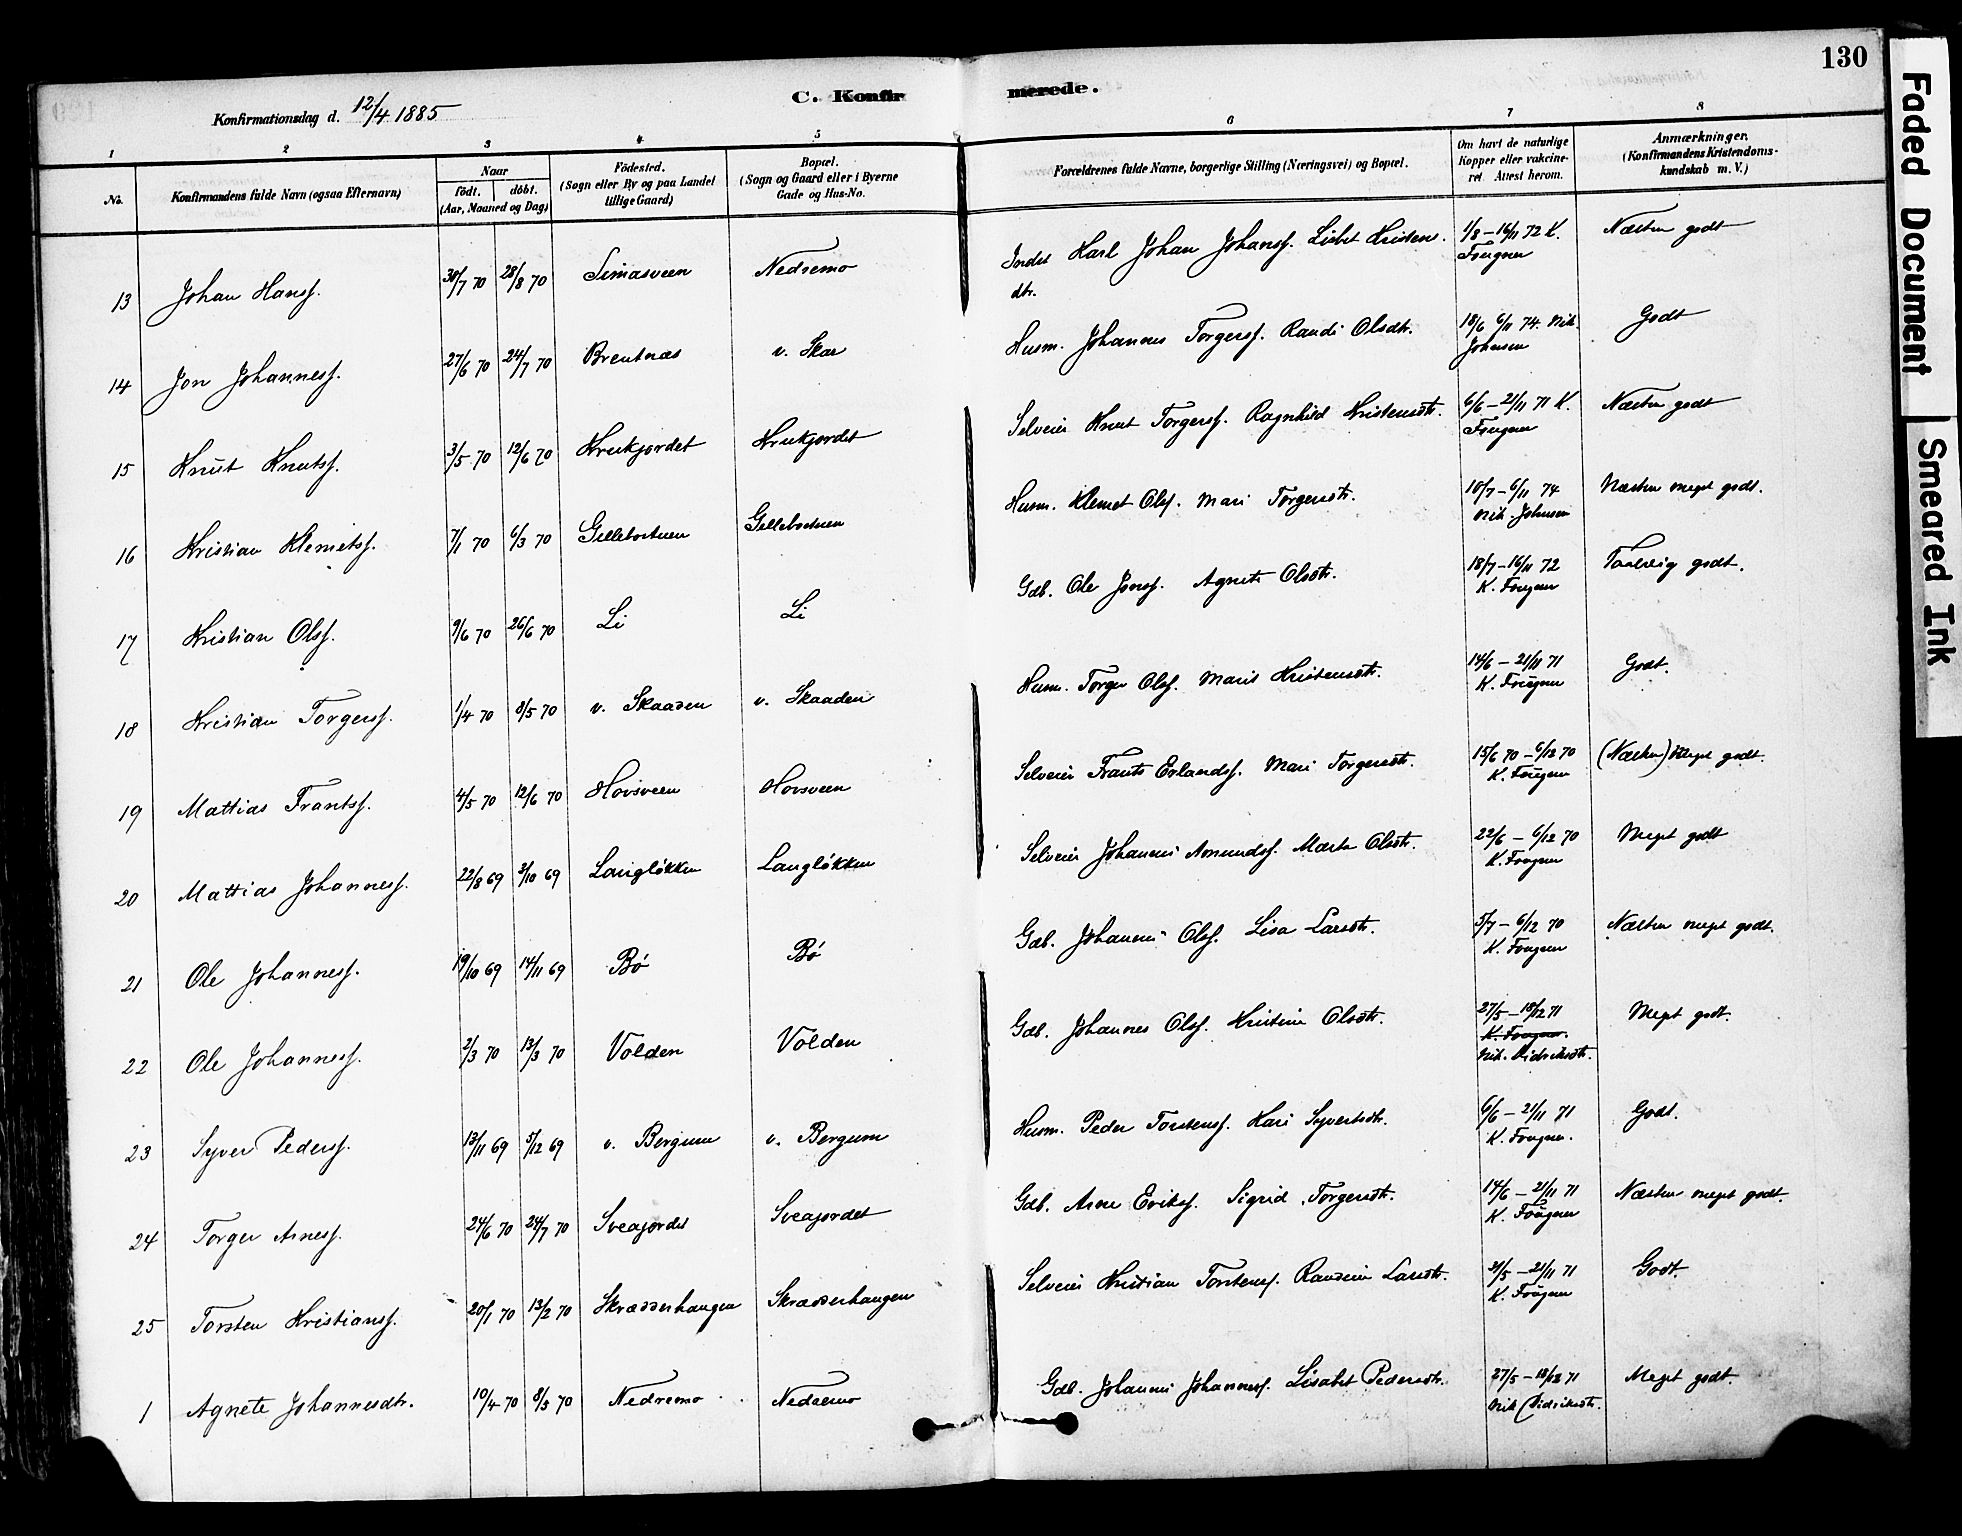 130
C. Konfirmerede.
Konfirmationsdag d. 12/4 1885
1 2 3 4 5 6 7 8
No. Konfirmandens fulde Navn (ogsaa Efternavn) Naar født. døbt. (Aar, Maaned og Dag) Fødested. (Sogn eller By og paa Landet tillige Gaard) Bopæl. (Sogn og Gaard eller i Byerne Gade og Hus-No. Forældrenes fulde Navne, borgerlige Stilling (Næringsvei) og Bopæl. Om havt de naturlige Kopper eller vakcineret Attest herom. Anmærkninger. (Konfirmandens Kristendomskundskab m. V.)
13 Johan Hansf. 30/7 70 28/8 70 Simasveen Nedremo Inderst Karl Johan Johansf. Lisbet Kristensdtr. 1/8 – 16/11 72 K. Fougner Næsten godt
14 Jon Johannesf. 27/6 70 24/7 70 Brentnæs v. Skar Husm. Johannes Torgersf. Randi Olsdtr. 18/6 6/11 74. Nik. Johnsen Godt
15 Knut Knutsf. 3/5 70 12/6 70 Krukjordet Krukjordet Selveier Knut Torgersf. Ragnhild Kristensdtr. 6/6 – 21/11 71 K. Fougner Næsten godt
16 Kristian Klemetsf. 7/1 70 6/3 70 Gillebostuen Gillebostuen Husm. Klemet Olsf. Mari Torgersdtr. 10/7 – 6/11 74 Nik. Johnsen Næsten meget godt.
17 Kristian Olsf. 9/6 70 26/6 70 Li Li Gdb. Ole Jonsf. Agnete Olsdtr. 18/7 – 16/11 72 K. Fougner Taalelig godt.
18 Kristian Torgersf. 1/4 70 8/5 70 v. Skaaden v. Skaaden Husm. Torger Olsf. Marit Kristensdtr. 14/6 – 21/11 71 K. Fougner Godt.
19 Mattias Frantsf. 4/5 70 12/6 70 Hovsveen Hovsveen Selveier Frants Erlandsf. Mari Torgersdtr. 15/6 70 – 6/12 70 K. Fougner (Næsten) Meget godt.
20 Mattias Johannesf. 22/8 69 3/10 69 Langløkken Langløkken Selveier Johannes Amundsf. Marta Olsdtr. 22/6 – 6/12 70 K. Fougner Meget godt
21 Ole Johannesf. 19/10 69 14/11 69 Bø Bø Gdb. Johannes Olsf. Lisa Larsdtr. 5/7 – 6/12 70 K. Fougner Næsten meget godt.
22 Ole Johannesf. 2/3 70 13/3 70 Volden Volden Gdb. Johannes Olsf. Kristine Olsdtr. 27/5 – 18/12 71 K. Fougner. Nik. Didriksdtr. Meget godt.
23 Syver Pedersf. 13/11 69 5/12 69 v. Bergum v. Bergum Husm. Peder Torstensf. Kari Syversdtr. 6/6 – 21/11 71 K. Fougner. Godt.
24 Torger Arnesf. 24/6 70 24/7 70 Sveajordet Sveajordet Gdb. Arne Eriksf. Sigrid Torgersdtr. 14/6 – 21/11 71 K. Fougner Næsten meget godt.
25 Torsten Kristiansf. 20/1 70 13/2 70 Skrædderhaugen Skrædderhaugen Selveier Kristian Torstensf. Randine Larsdtr. 21/5 – 21/11 71 K. Fougner Godt.
1 Agnete Johannesdtr. 10/4 70 8/5 70 Nedremo Nedremo Gdb. Johannes Johannesf. Lisabet Pedersdtr. 27/5 – 18/12 71 Nik (Didriksdtr. Meget godt.
Faded Document
Smeared Ink